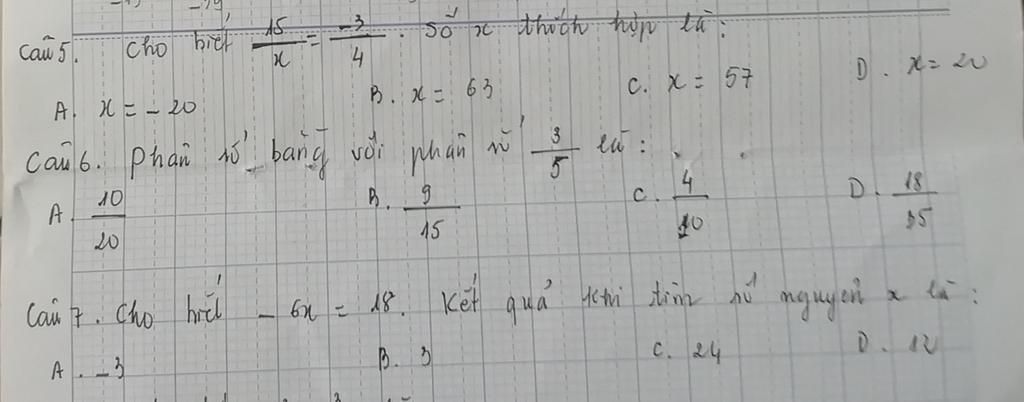 Câu 5. Cho biết 15/x = -3/4. Số x thích hợp là:
A. x = - 20 B. x = 63 C. x = 57 D. x = 20
Câu 6. Phân số bằng với phân số 3/5 là:
A. 10/20 B. 9/15 C. 4/10 D. 18/15
Câu 7. Cho biết - 6x = 18. Kết quả khi tìm số nguyên x là:
A. -3 B. 3 C. 24 D. 12